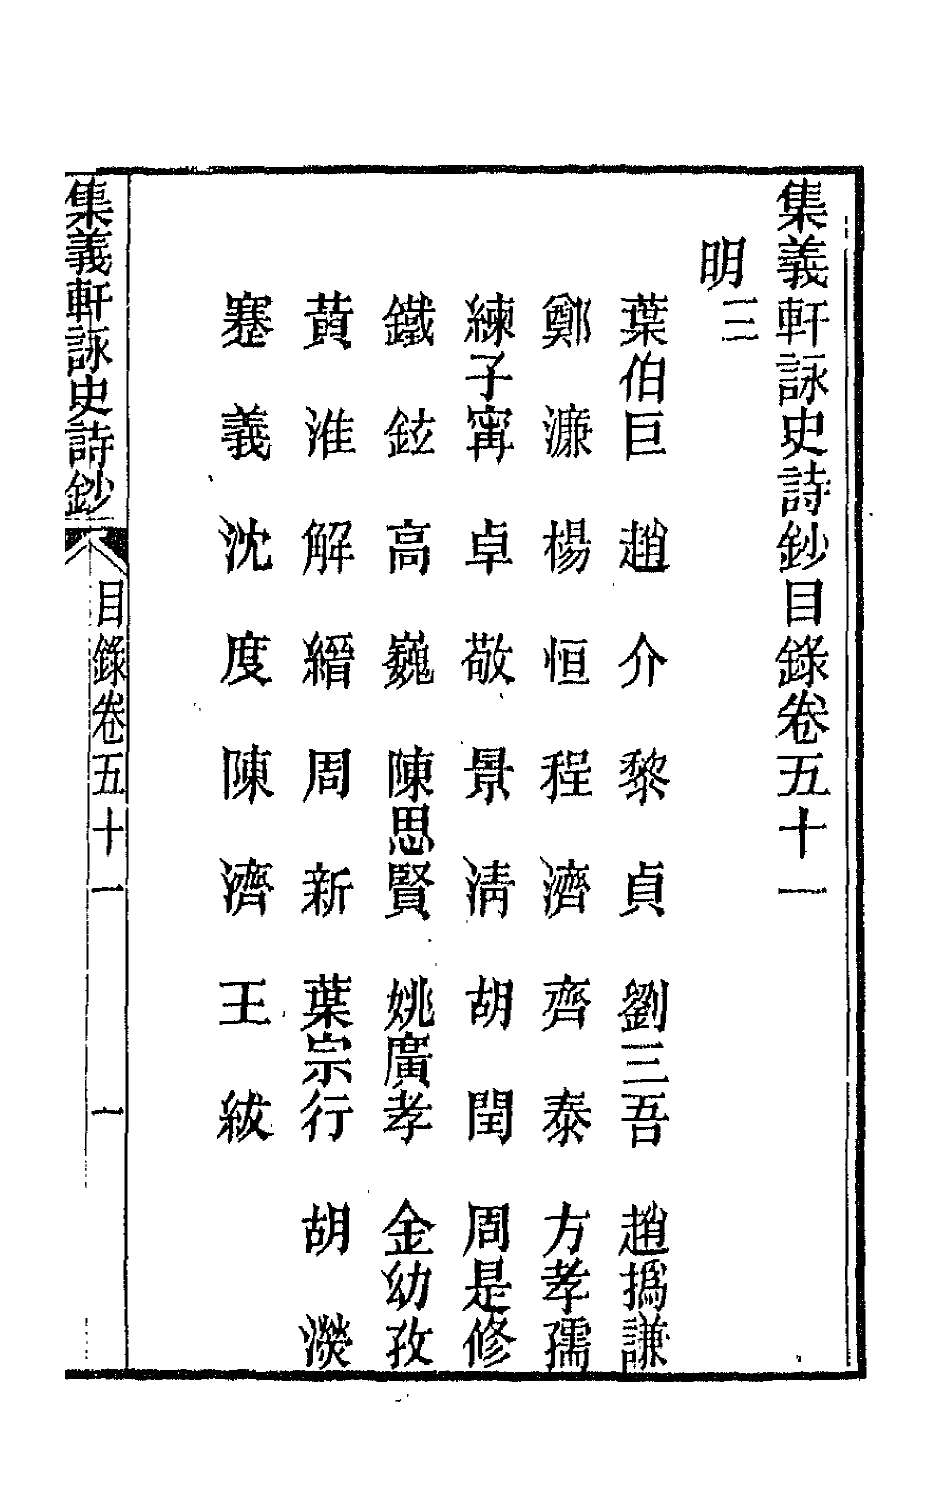 集義軒詠史詩鈔目錄卷五十一
明三
葉伯巨 趙介 黎貞 劉三吾 趙撝謙
鄭濂 楊恒 程濟 齊泰 方孝孺
練子寗 卓敬 景清 胡閏 周是修
鐵鉉 高巍 陳思賢 姚廣孝 金幼孜
黃淮 解縉 周新 葉宗行 胡濙
蹇義 沈度 陳濟 王紱
集義軒詠史詩鈔 目錄卷五十一 一